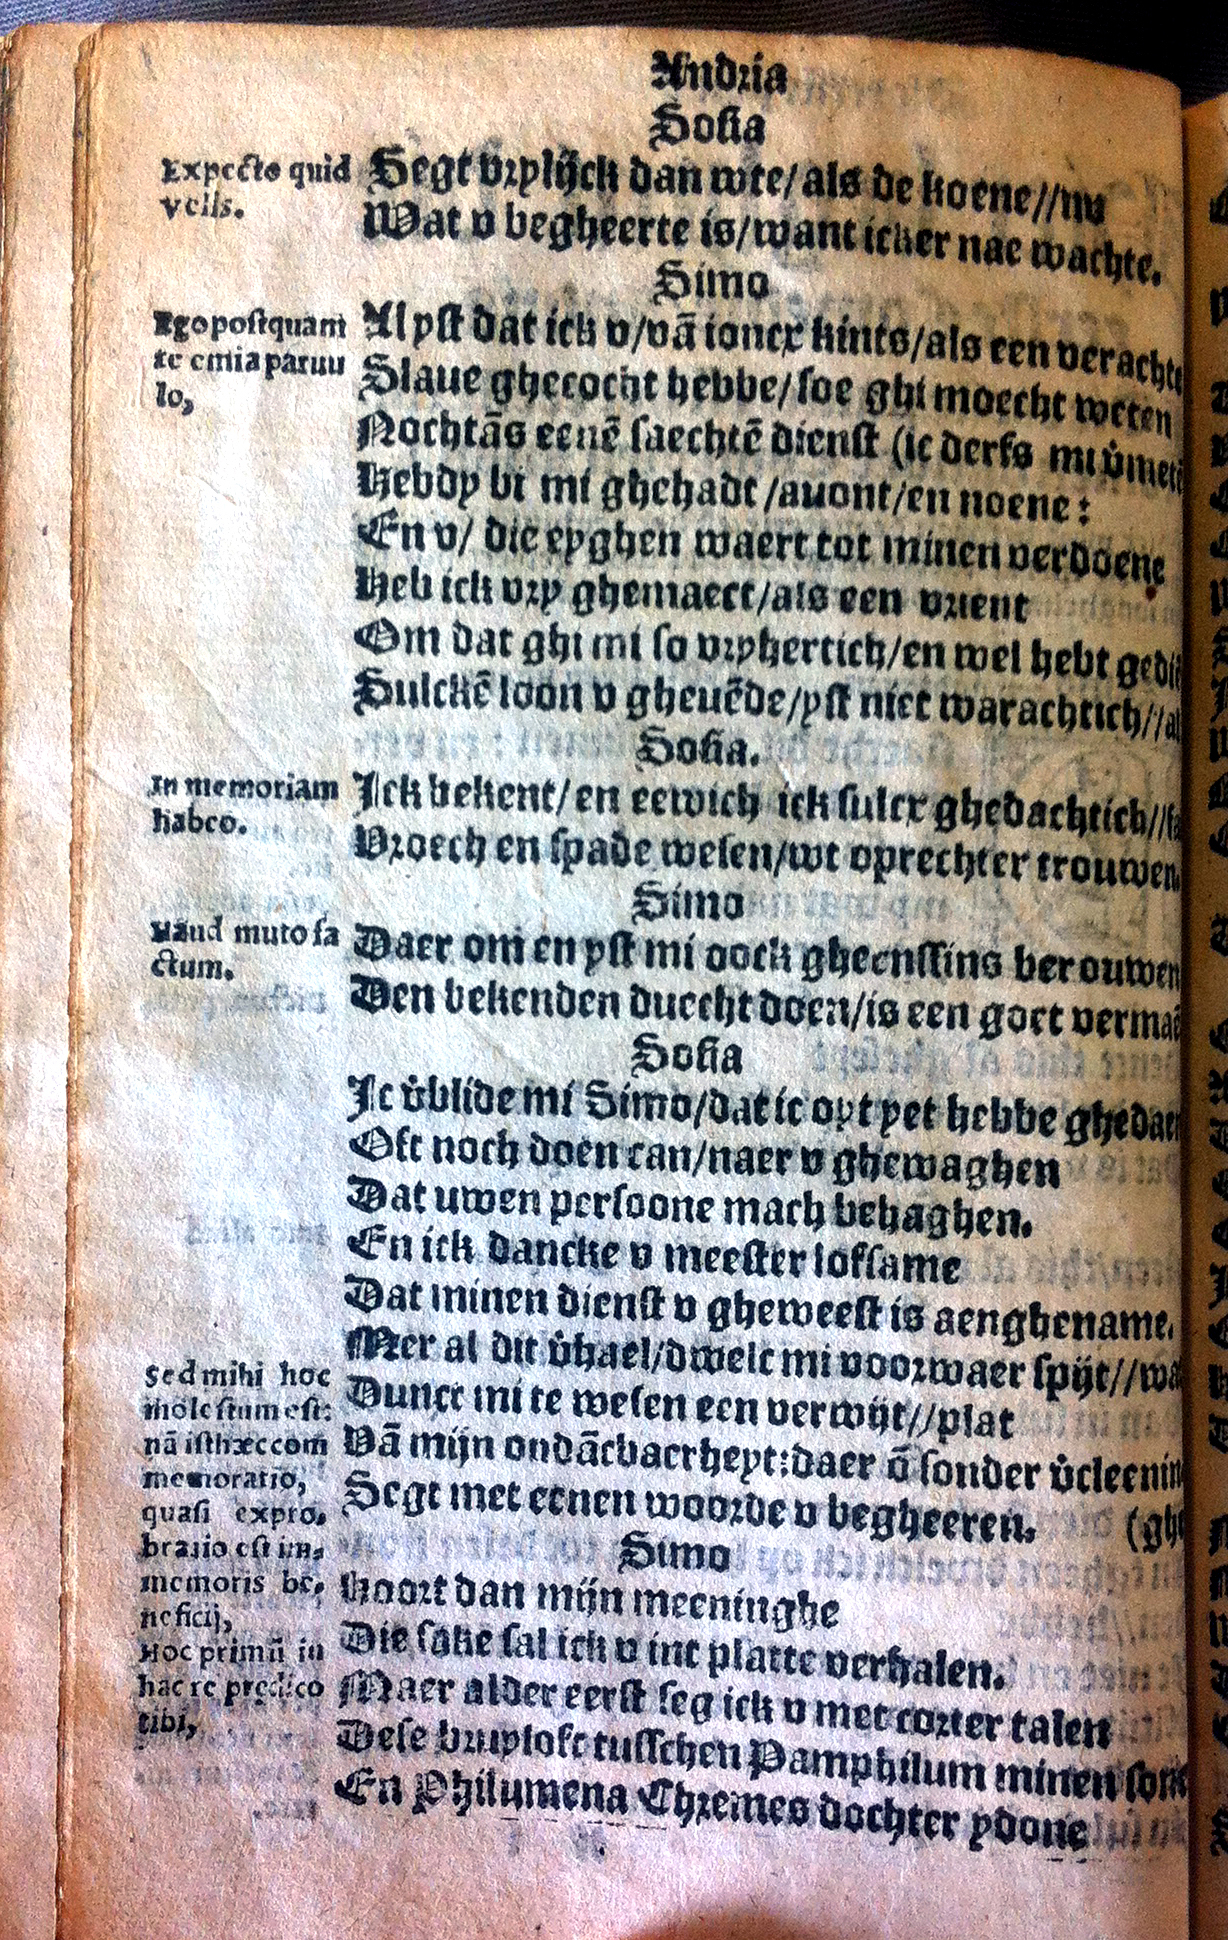 Andria
Sosia
Expecto quid
velis.
Segt vrplijck dan wte/ als de koene//nu
Wat v begheerte is/want icker nae wachte.
Simo
Ego postquam
te emi a paruu
lo,
Al yst dat ick v/vā ioncx kints/als een verachte
Slaue ghecocht hebbe/soe ghi moecht weten
Nochtās eenē saechtē dienst (ic derfs mi v̊mete
Hebdy bi mi ghehadt /auont/en noene:
En v/ die eyghen waert tot minen verdoene
Heb ick vry ghemaect/als een vrient
Om dat ghi mi so vryhertich/en wel hebt gedi
Sulckē loon v gheuēde/yst niet warachtich//al
Sosia.
In memoriam
habeo.
Ick bekent/en eewich ick sulcx ghedachtich//sa
Vroech en spade wesen/wt oprechter trouwen.
Simo
Haud muto fa
ctum.
Daer om en yst mi oock gheenssins berouwen
Den bekenden duecht doen/is een goet vermaē
Sosia
Ic v̊blide mi Simo/dat ic oyt yet hebbe ghedaen
Oft noch doen can/naer v ghewaghen
Dat uwen persoone mach behaghen.
En ick dancke v meester lofsame
Dat minen dienst v gheweest is aenghename.
Sed mihi hoc
molestum est:
nā isthæc com
memoratio,
quasi expro-
bratio est im-
memoris be-
neficij,
Mer al dit v̊hael/dwelc mi voorwaer spijt//wa
Dunct mi te wesen een verwijt//plat
Vā mijn ondācbaerheyt:daer ō sonder v̊cleenin
Segt met eenen woorde v begheeren. (ghe
Simo
Hoc primū in
hac re prędico
tibi,
Hoort dan mijn meeninghe
Die sake sal ick v int platte verhalen.
Maer alder eerst seg ick v met corter talen
Dese bruyloft tusschen Pamphilum minen sone
En Philumena Chremes dochter ydone